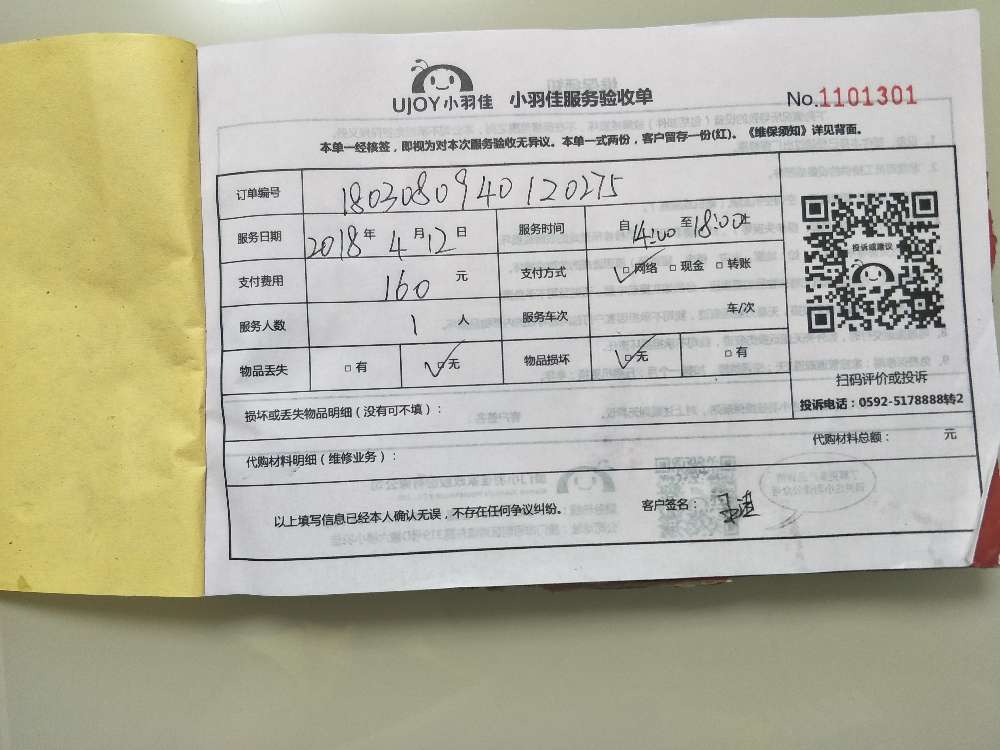 UJOY小羽佳 小羽佳服务验收单 No.1101301
本单一经核签，即视为对本次服务验收无异议。本单一式两份，客户留存一份(红)。《维保须知》详见背面。
订单编号 1803080940120275
服务日期 2018年4月12日 服务时间 自14:00至18:00止
支付费用 160元 支付方式 ☑网络 □现金 □转账
服务人数 1人 服务车次 车/次
物品丢失 □有 ☑无 物品损坏 ☑无 □有
投诉或建议
扫码评价或投诉
投诉电话：0592-5178888转2
损坏或丢失物品明细（没有可不填）：
代购材料明细（维修业务）： 代购材料总额： 元
以上填写信息已经本人确认无误，不存在任何争议纠纷。 客户签名：